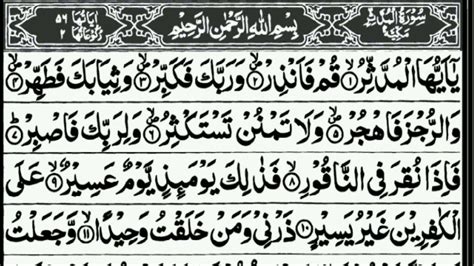 سُوْرَةُ الْمُدَّثِّرِ مَكِّيَّةٌ بِسْمِ اللهِ الرَّحْمٰنِ الرَّحِيْمِ اٰيَاتُهَا ٥٦ رُكُوْعَاتُهَا ٢
يٰۤاَيُّهَا الْمُدَّثِّرُ ۙ﴿۱﴾ قُمْ فَاَنْذِرْ ۪ۙ﴿۲﴾ وَرَبَّكَ فَكَبِّرْ ۪ۙ﴿۳﴾ وَثِيَابَكَ فَطَهِّرْ ۪ۙ﴿۴﴾
وَالرُّجْزَ فَاهْجُرْ ۪ۙ﴿۵﴾ وَلَا تَمْنُنْ تَسْتَكْثِرُ ۪ۙ﴿۶﴾ وَلِرَبِّكَ فَاصْبِرْ ؕ﴿۷﴾
فَاِذَا نُقِرَ فِی النَّاقُوْرِ ۙ﴿۸﴾ فَذٰلِكَ يَوْمَئِذٍ يَّوْمٌ عَسِيْرٌ ۙ﴿۹﴾ عَلَی
الْكٰفِرِيْنَ غَيْرُ يَسِيْرٍ ﴿۱۰﴾ ذَرْنِیْ وَمَنْ خَلَقْتُ وَحِيْدًا ۙ﴿۱۱﴾ وَّجَعَلْتُ